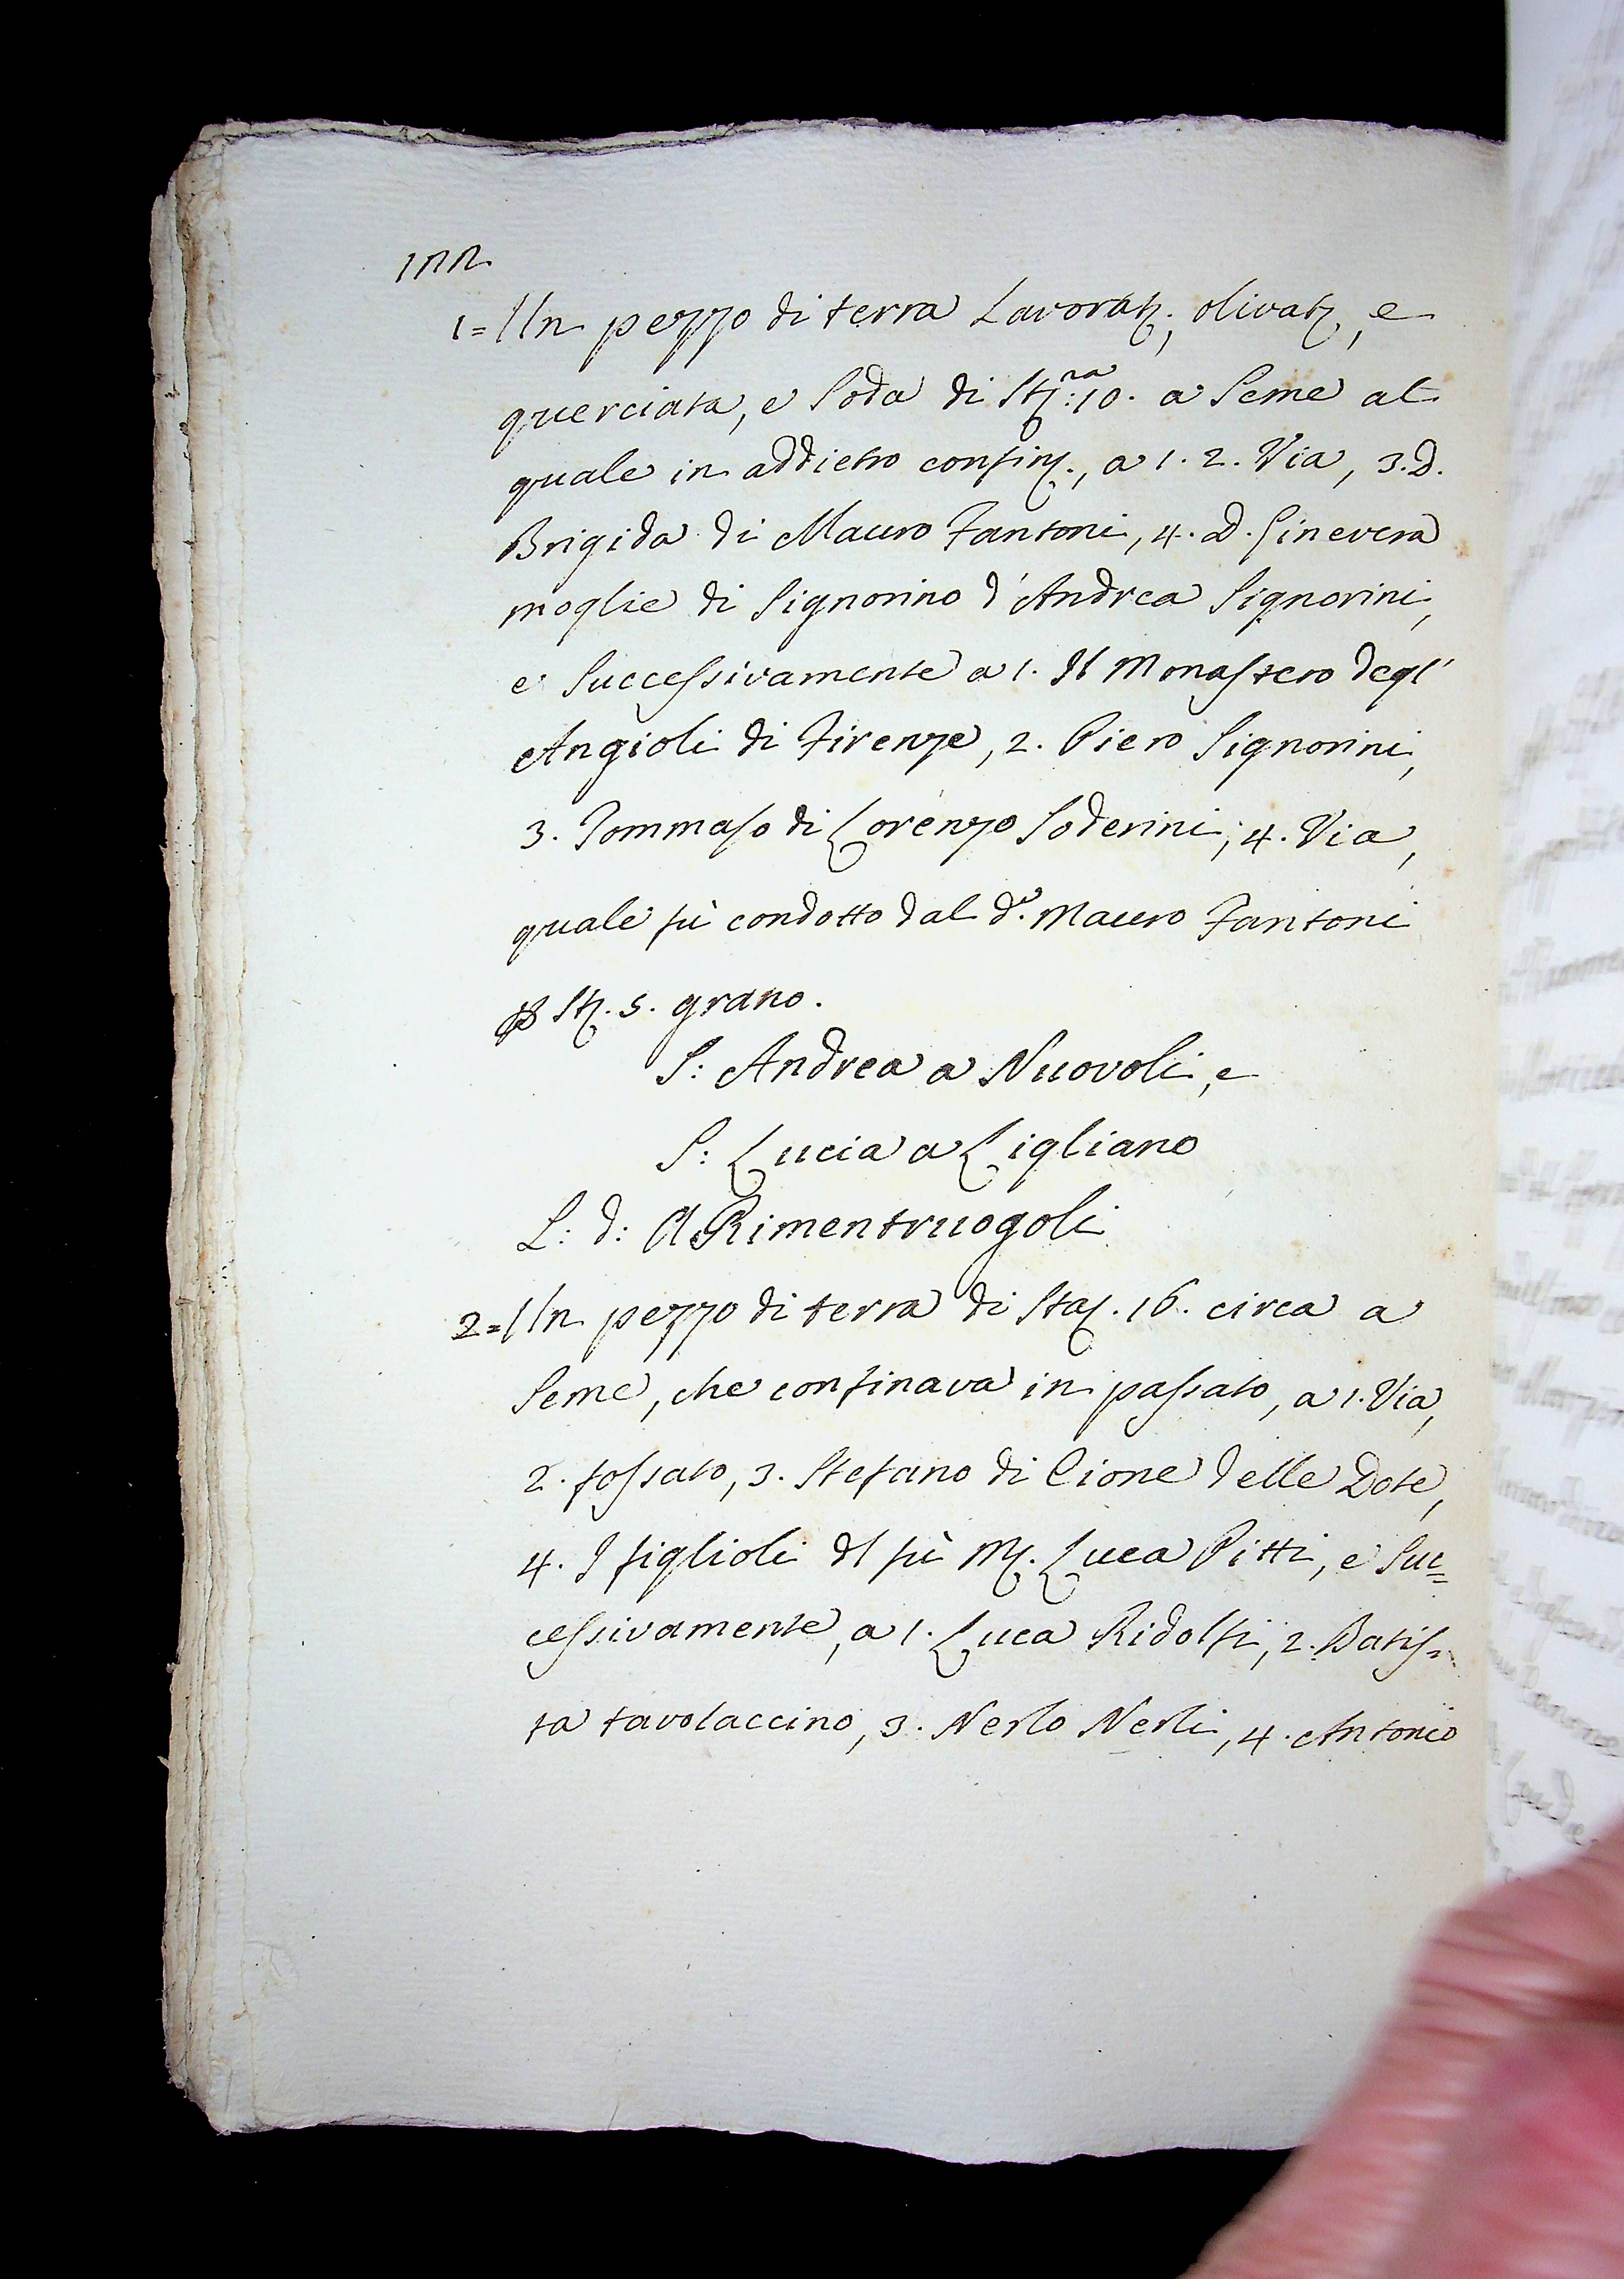 1= Un pezzo di terra Lavorat:, olivat:, e
querciata, e Soda di St:ra 10. a Seme al
quale in addietro confin:, a 1. 2. Via, 3. D.
Brigida di Mauro Fantoni, 4. D. Ginevera
moglie di Signorino d'Andrea Signorini,
e Successivamente a 1. Il Monastero degl'
Angioli di Firenze, 2. Piero Signorini,
3. Tommaso di Lorenzo Soderini, 4. Via,
quale fù condotto dal d.o Mauro Fantoni
p St: 5. grano.
S: Andrea a Nuovoli, e
S: Lucia a Ligliano
L: d: A Rimentruogoli
2= Un pezzo di terra di Sta: 16. circa a
Seme, che confinava in passato, a 1. Via,
2. fossato, 3. Stefano di Cione delle Dote,
4. I figlioli dl fù M: Luca Pitti, e Suc=
cessivamente, a 1. Luca Ridolfi, 2. Batis=
ta tavolaccino, 3. Nerlo Nerli, 4. Antonio